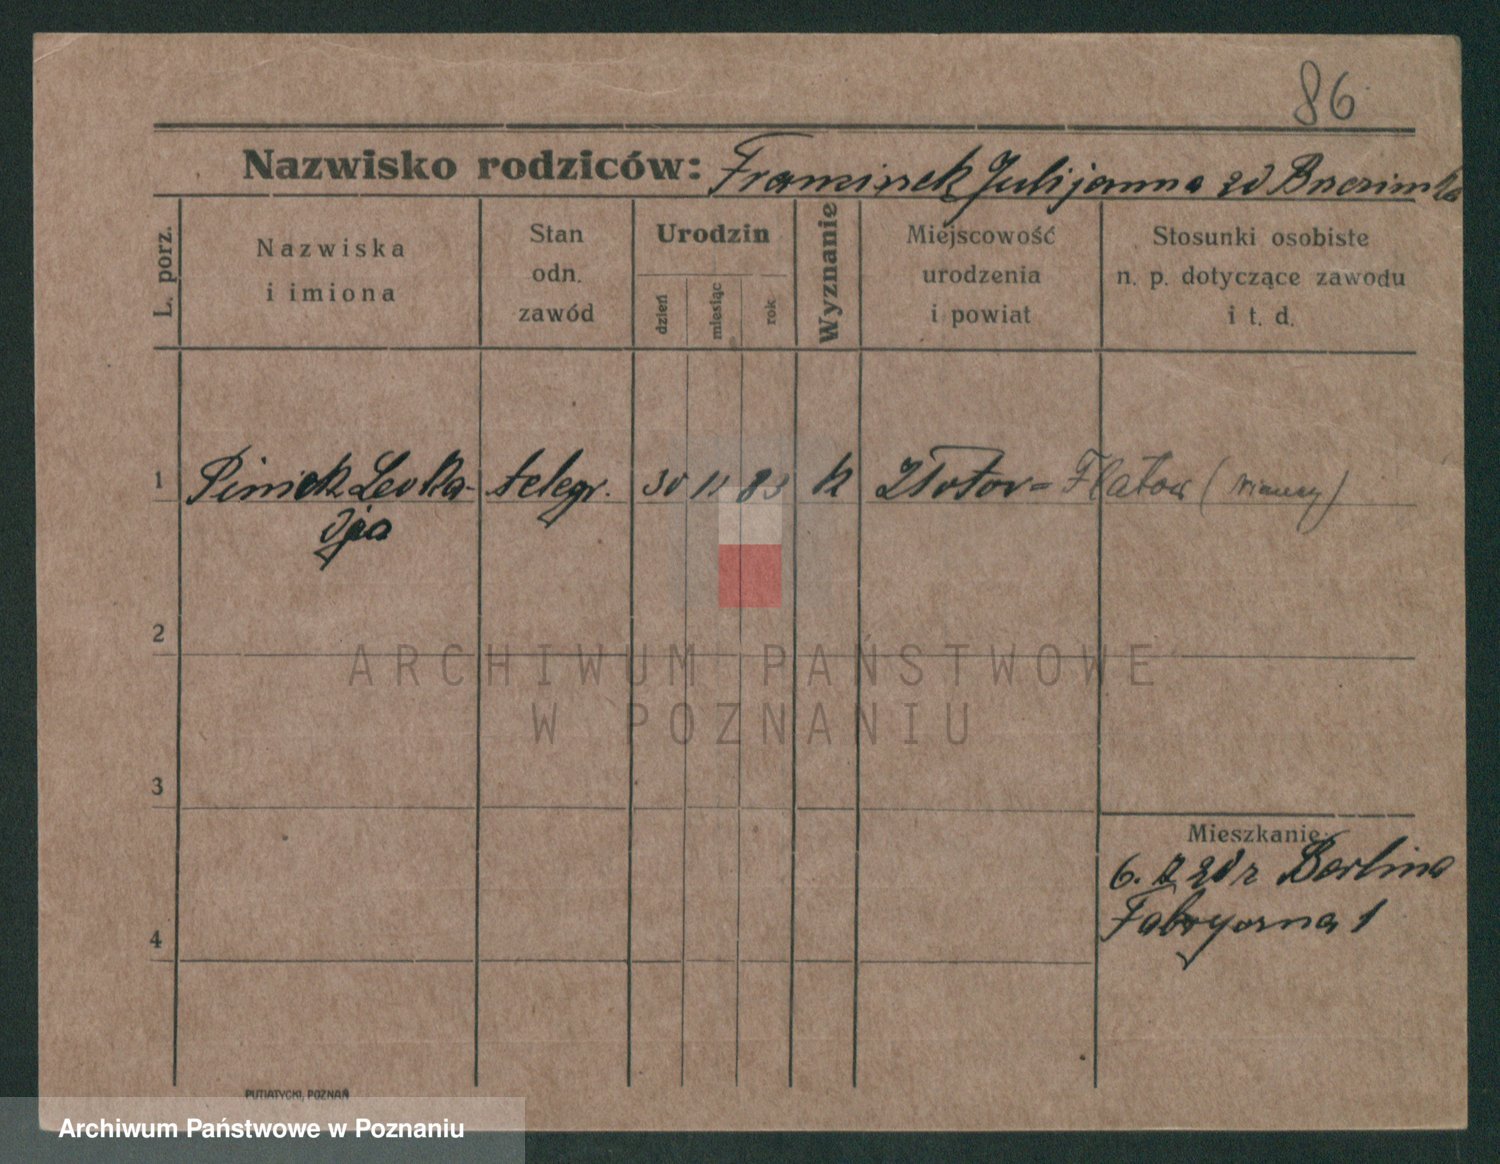 86
Nazwisko rodziców: Franciszek Julijanna zd
L. porz.
Nazwiska
i imiona
Stan
odn.
zawód
Urodzin
dzień
miesiąc
rok
Wyznanie
Miejscowość
urodzenia
i powiat
Stosunki osobiste
n. p. dotyczące zawodu
i t. d.
1 Leoka- telegr. 30 11 83 k Złotov = Flatow (Niemcy)
dja
2
ARCHIWUM PAŃSTWOWE
W POZNANIU
3
Mieszkanie:
6. 2 20 r Berlina
4 Fabryczna 1
PUTIATYCKI, POZNAŃ
Archiwum Państwowe w Poznaniu